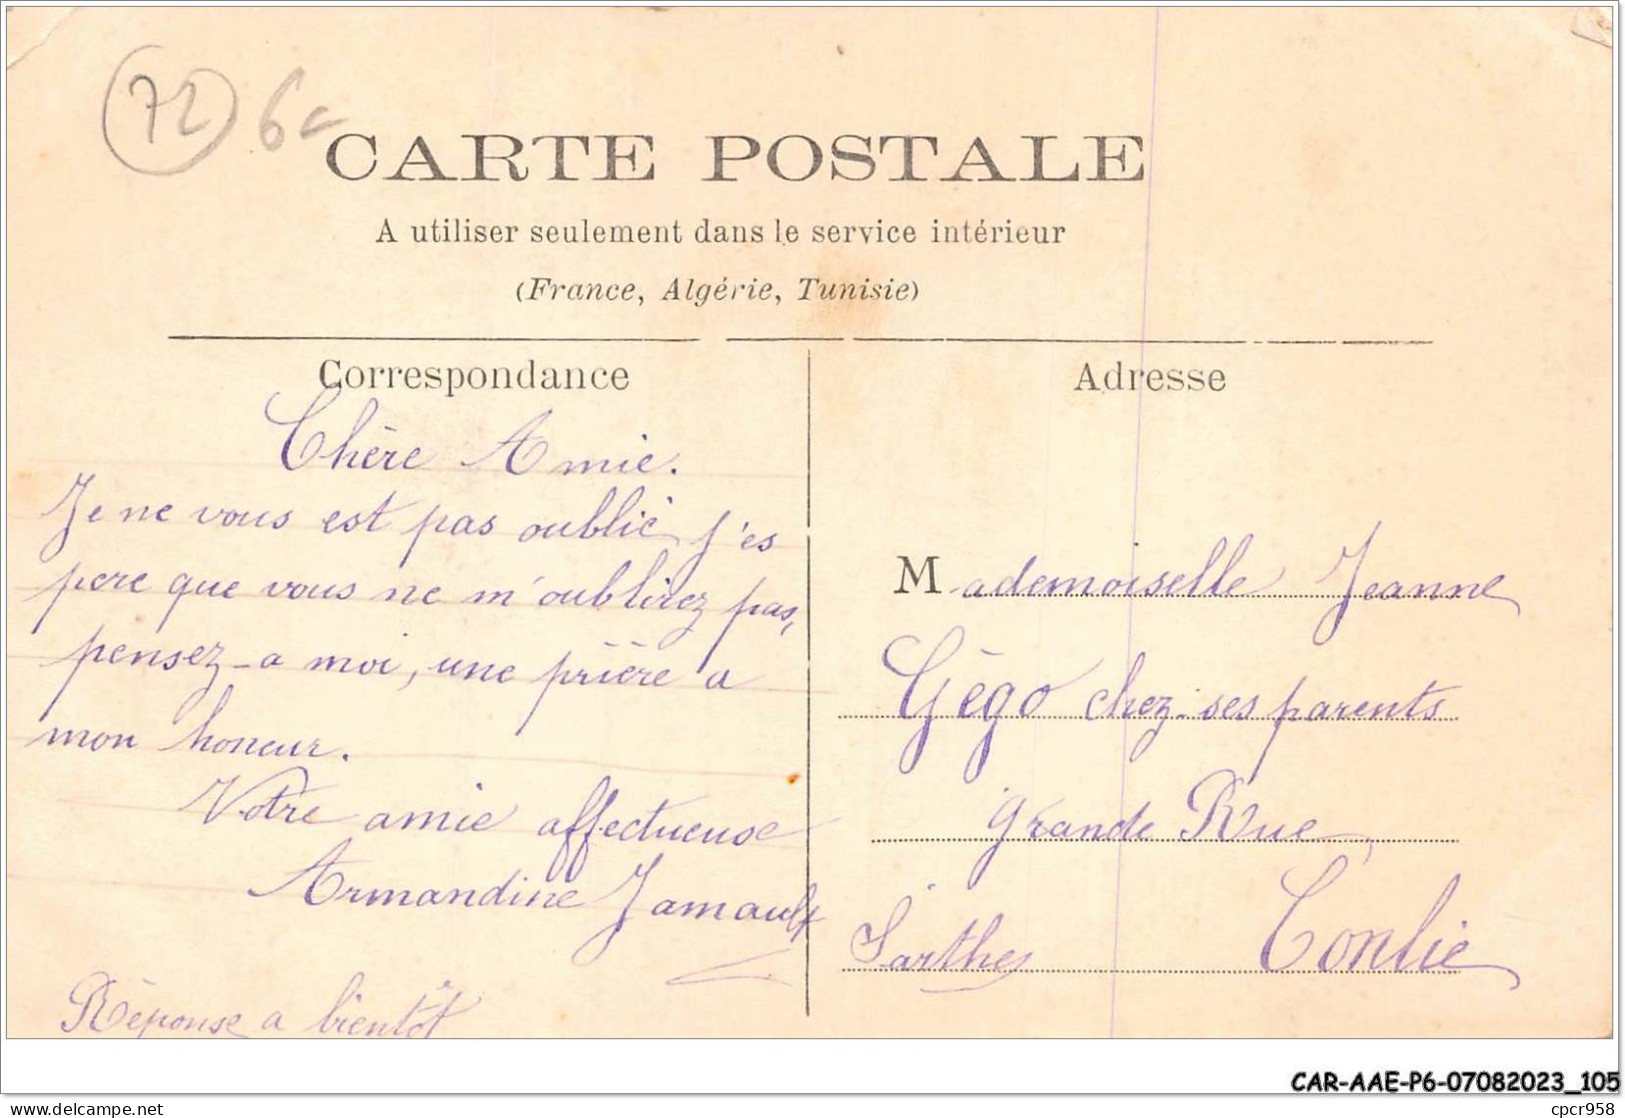 72 6c
CARTE POSTALE
A utiliser seulement dans le service intérieur
(France, Algérie, Tunisie)
Correspondance
Chère Amie.
Je ne vous est pas oublié j'es
pere que vous ne m'oublirez pas,
pensez-a moi, une prière a
mon honeur.
Votre amie affectueuse
Armandine Jamault
Réponse a bientôt
Adresse
Mademoiselle Jeanne
Gégo chez ses parents
grande Rue
Sarthe Conlie
CAR-AAE-P6-07082023_105
delcampe.net
cpcr958